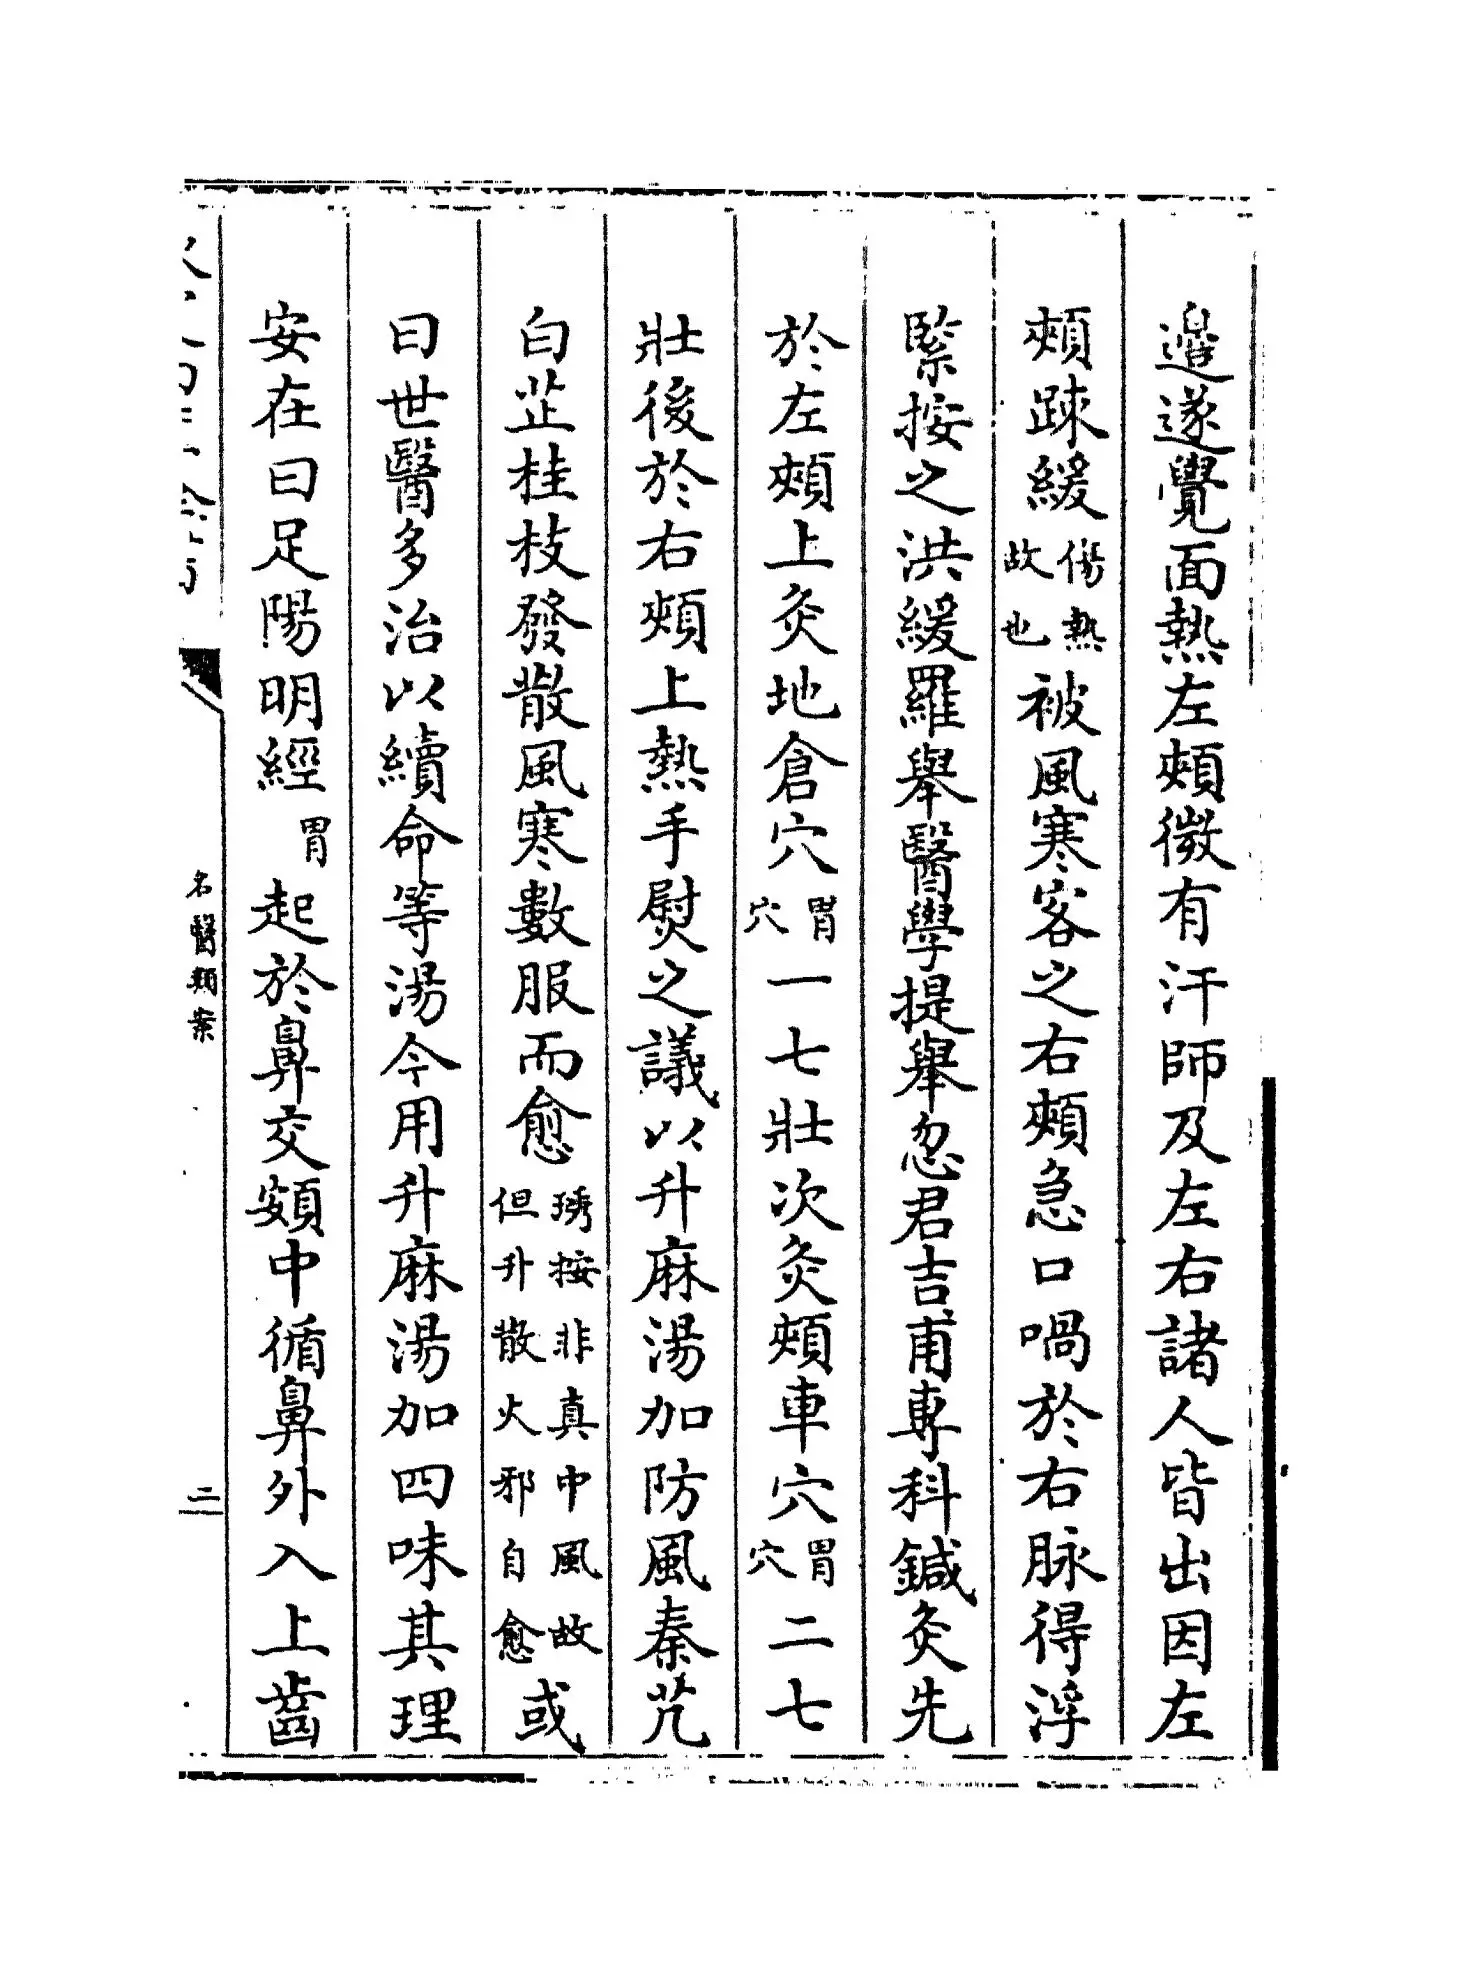 邉遂覺面熱左頰微有汗師及左右諸人皆出因左
頰疎緩傷熱故也被風寒客之右頰急口喎於右脉得浮
緊按之洪緩羅舉醫學提舉忽君吉甫專科鍼灸先
於左頰上灸地倉穴胃穴一七壯次灸頰車穴胃穴二七
壯後於右頰上熱手熨之議以升麻湯加防風秦艽
白芷桂枝發散風寒數服而愈琇按非真中風故但升散火邪自愈或
曰世醫多治以續命等湯今用升麻湯加四味其理
安在曰足陽明經胃起於鼻交頞中循鼻外入上齒
名醫類案
二